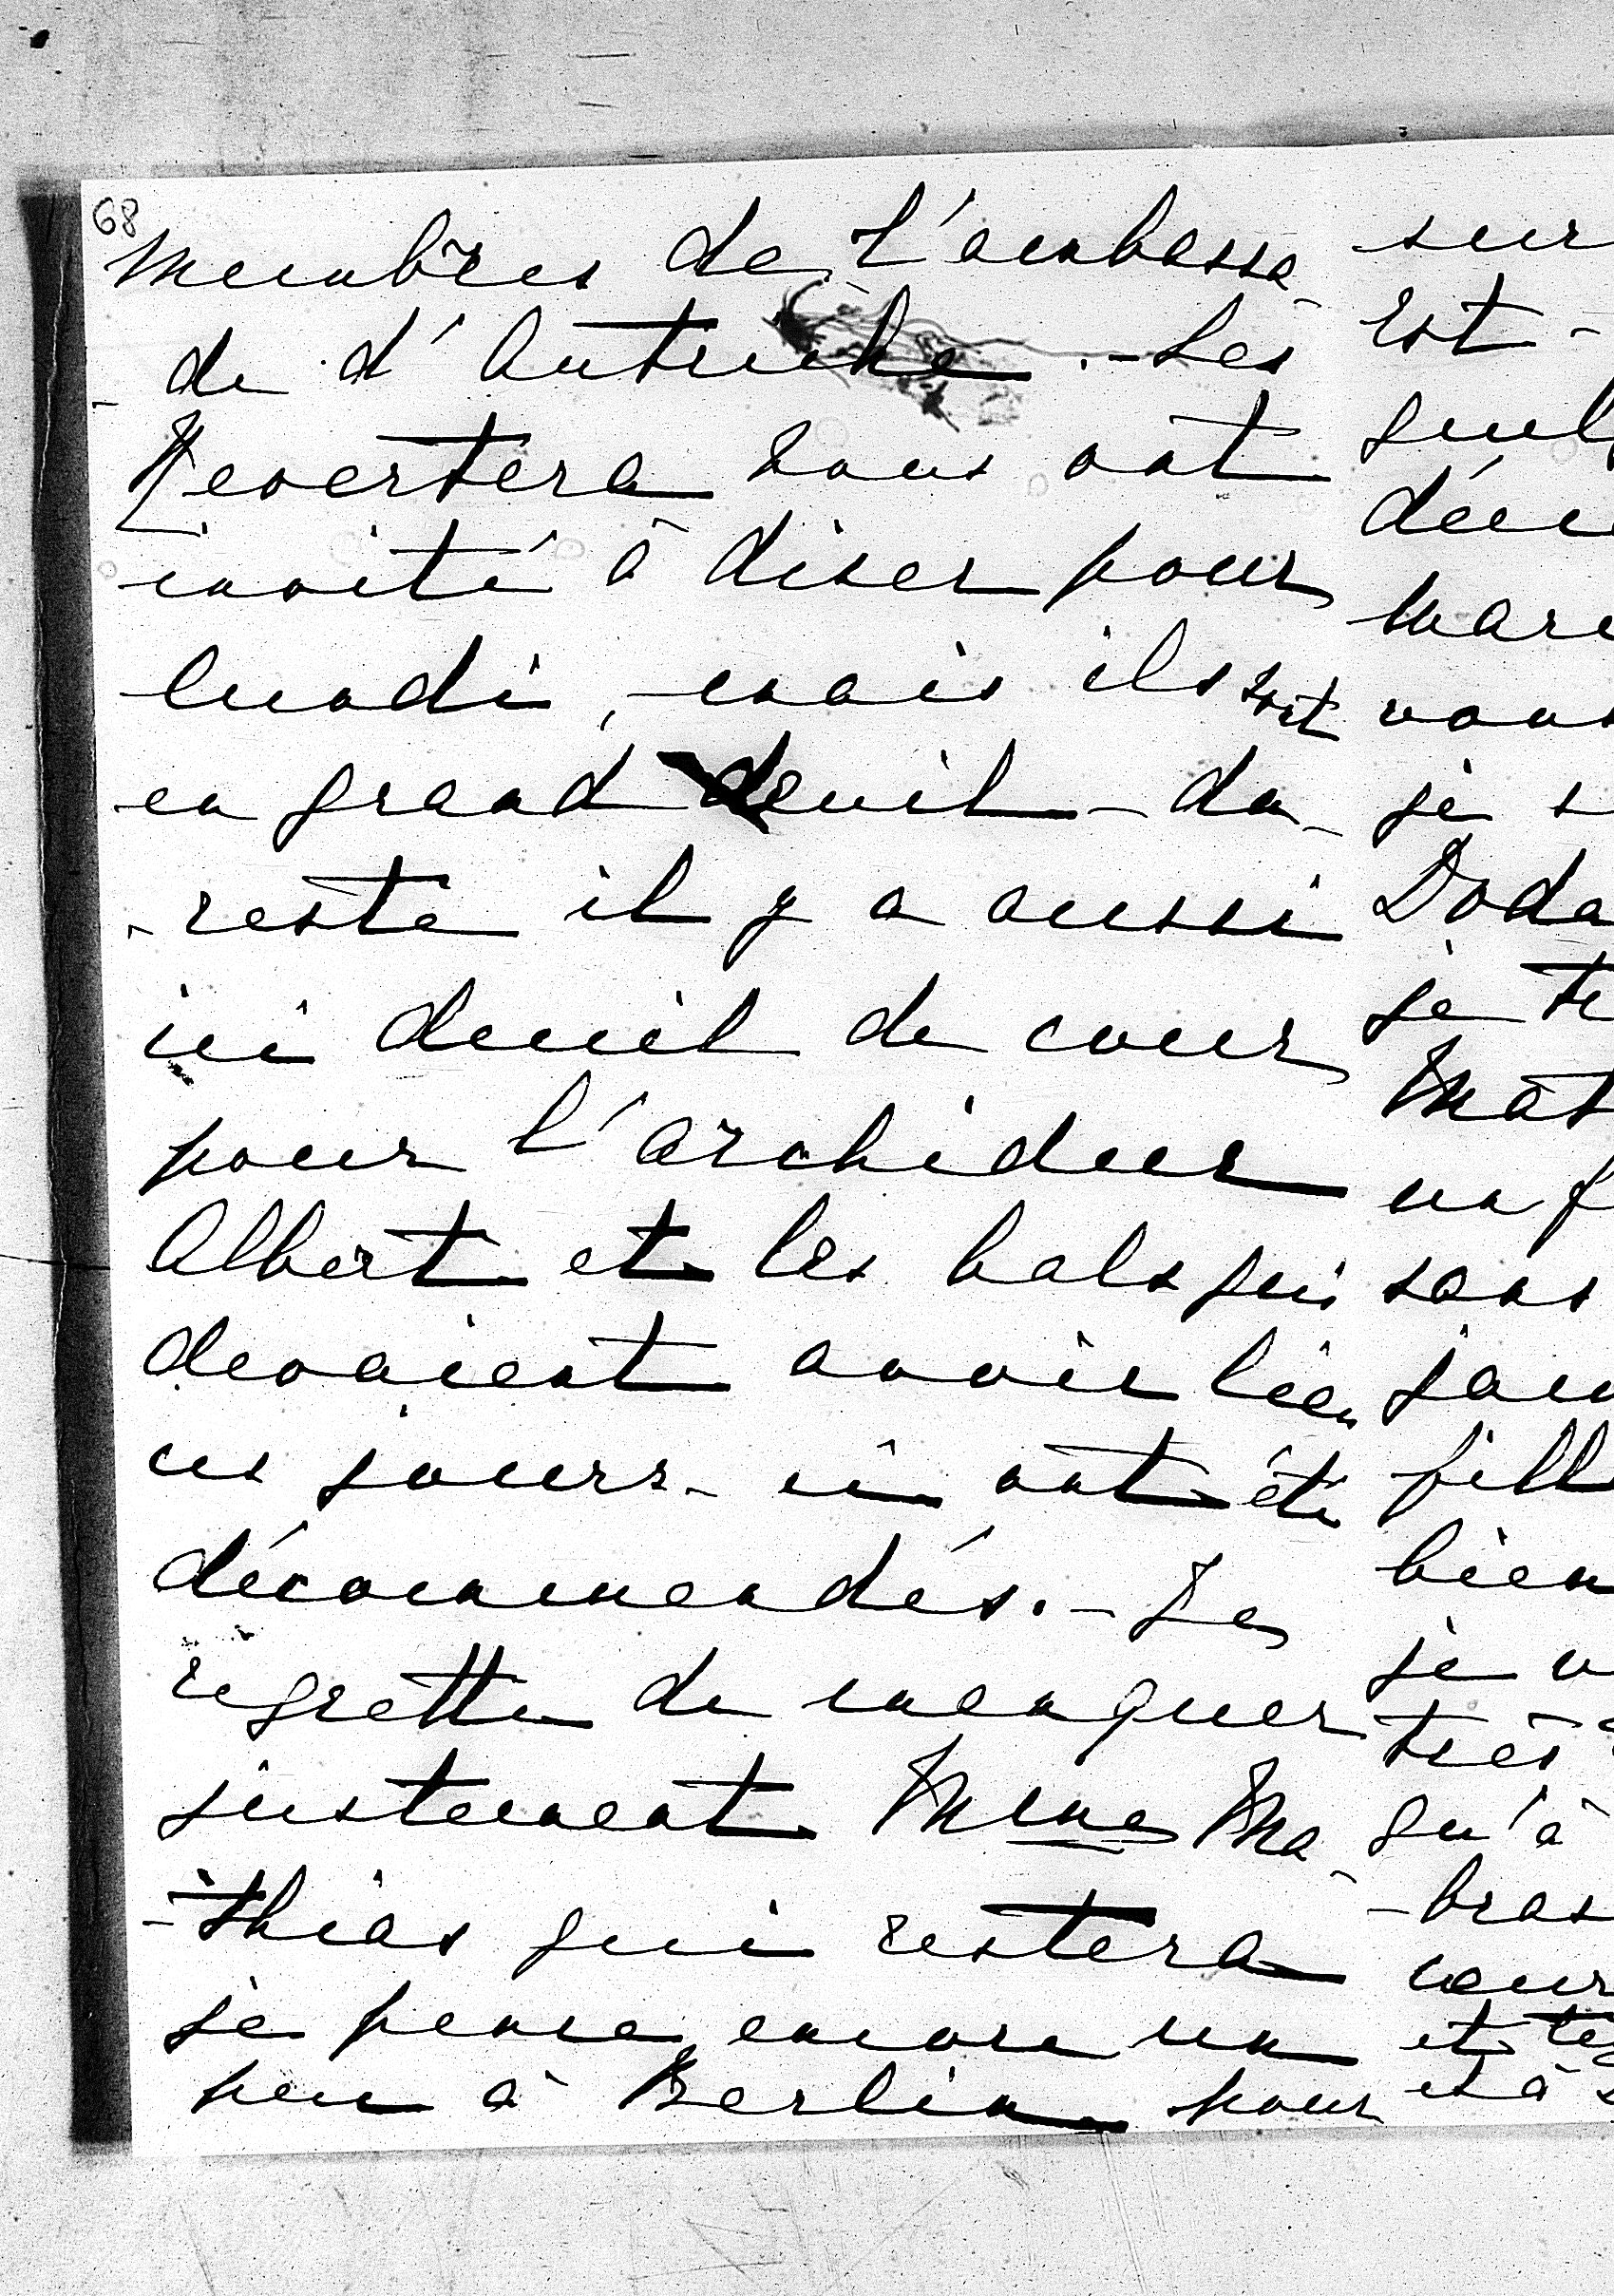 68
membres de l'ambassa-
-de d'Autriche. - Les
Revertera nous ont
invité à diner pour
lundi, mais ils sont
en grand deuil - du-
-reste il y a aussi
ici deuil de cour
pour l'archiduc
Albert et les bals qui
devaient avoir lieu
ces jours-ci ont été
décommandés. - Je
regrette de manquer
justement Mme Ma-
-thias qui restera
je pense encore un
peu à Berlin pour
sur
est-
quel
déci
mari
vous
je s
Doda
je tr
Mat
un p
sans
jam
fill
bien
je v
très
qu'à
-bras
coeur
et te
et à